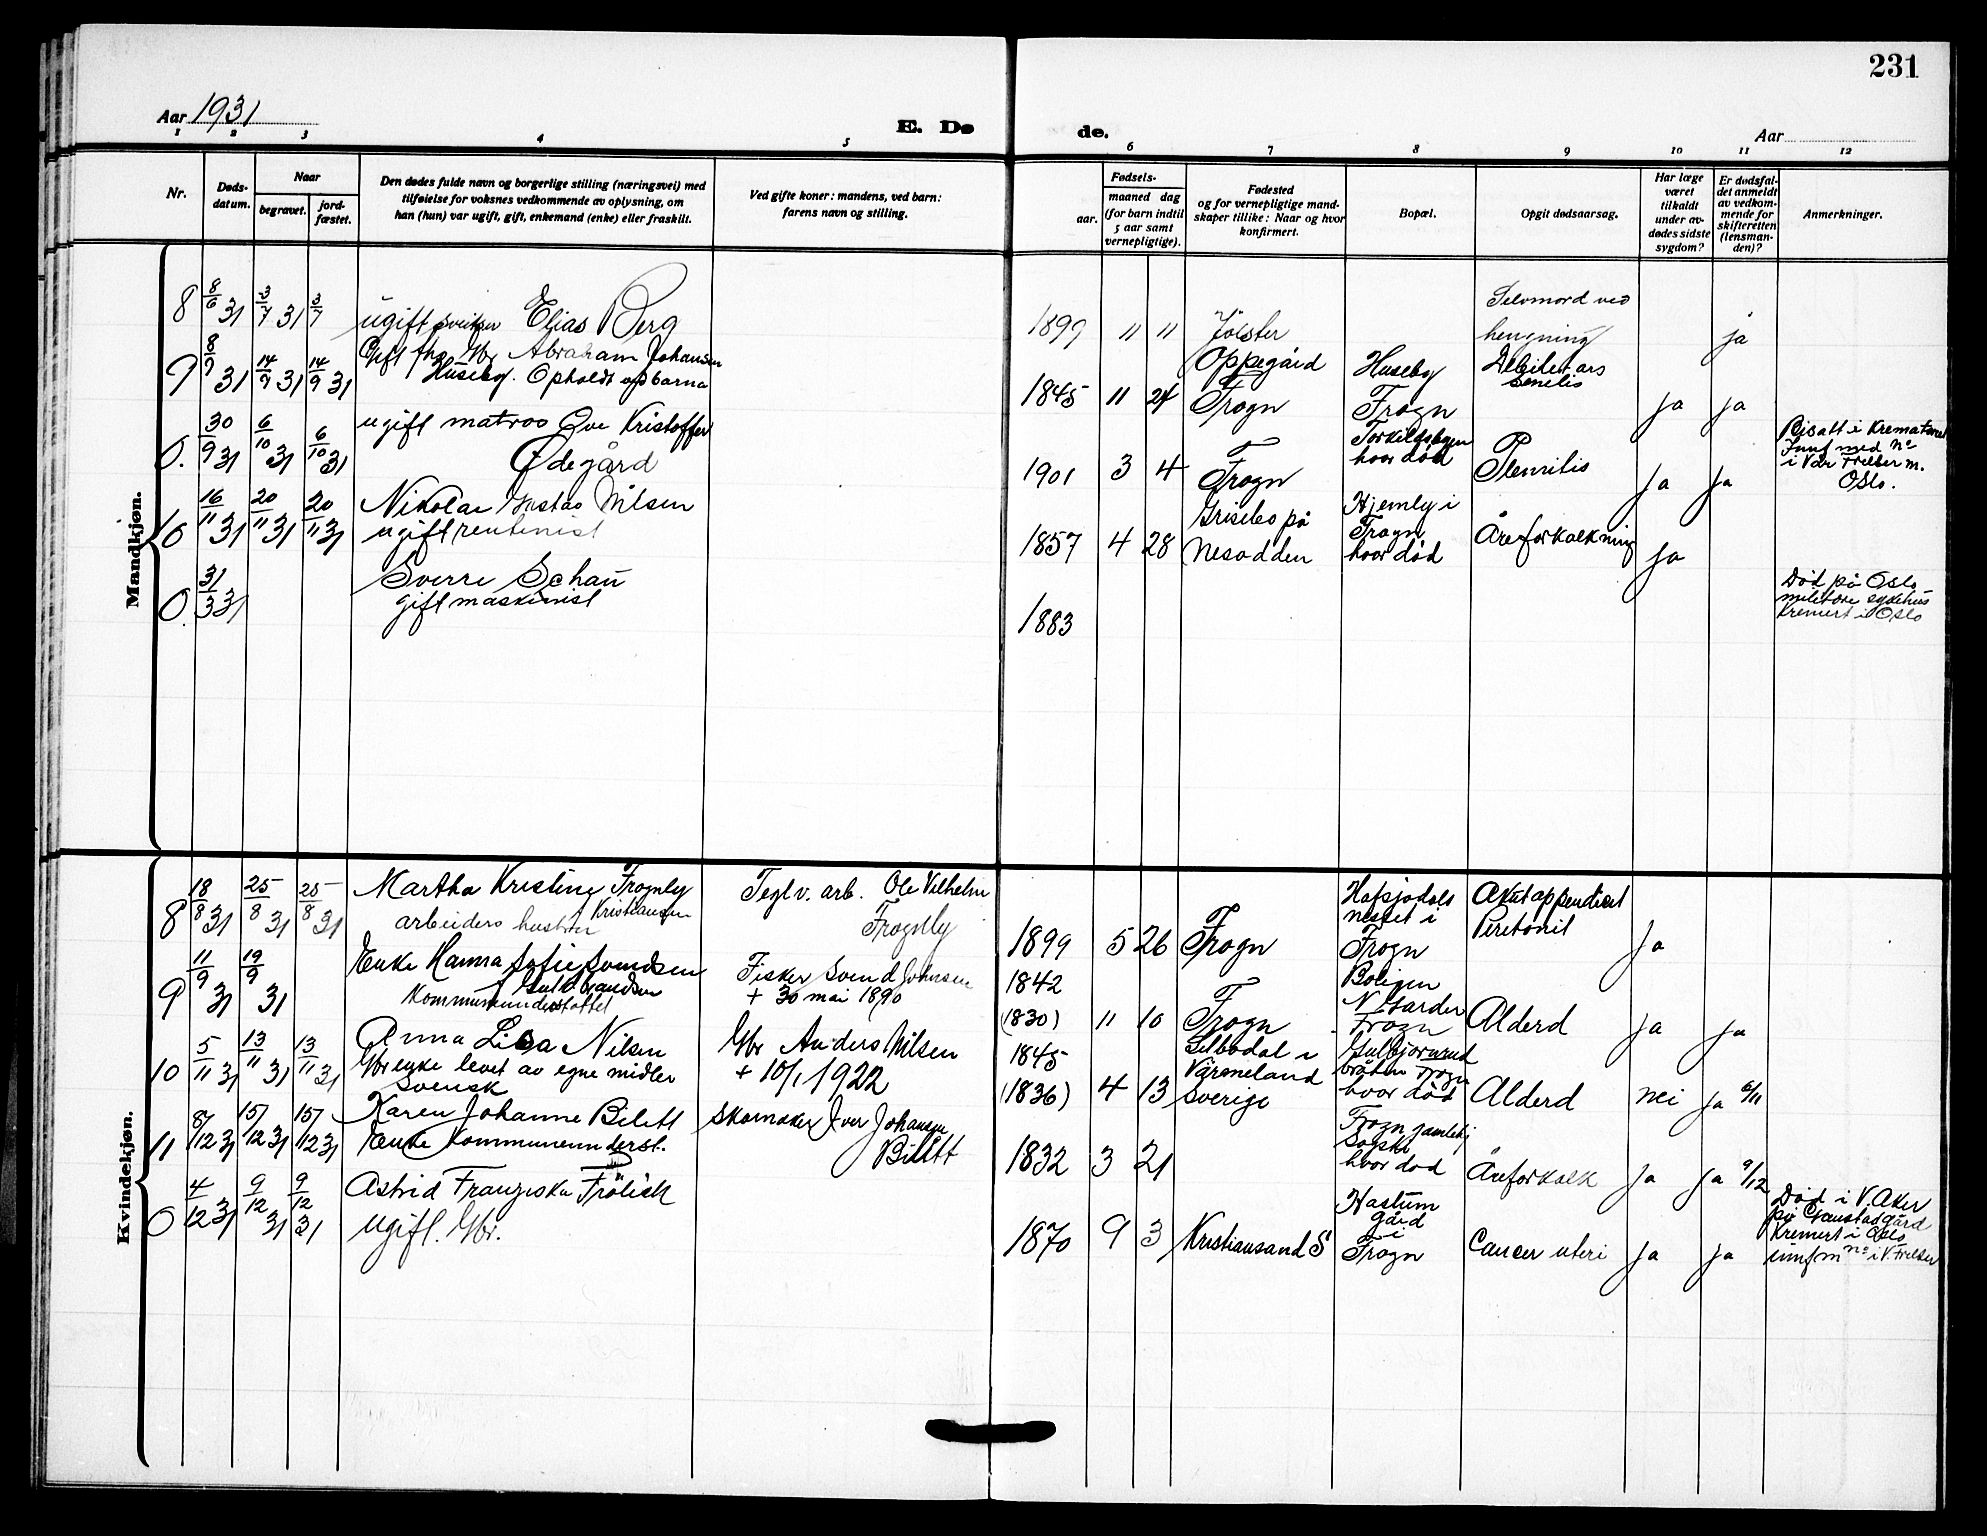 231
Aar 1931
E. Dø de.
Aar
1 2 3 4 5 6 7 8 9 10 11 12
Nr.
Døds-
datum.
Naar
begravet.
jord-
fæstet.
Den dødes fulde navn og borgerlige stilling (næringsvei) med
tilføielse for voksnes vedkommende av oplysning, om
han (hun) var ugift, gift, enkemand (enke) eller fraskilt.
Ved gifte koner: mandens, ved barn:
farens navn og stilling.
Fødsels-
aar.
maaned dag
(for barn indtil
5 aar samt
vernepligtige).
Fødested
og for vernepligtige mand-
skaper tillike: Naar og hvor
konfirmert.
Bopæl.
Opgit dødsaarsag.
Har læge
været
tilkaldt
under av-
dødes sidste
sygdom?
Er dødsfal-
det anmeldt
av vedkom-
mende for
skifteretten
(lensman-
den)?
Anmerkninger.
Mandkjøn.
8 8/6 31 3/7 31 3/7 ugift sveitser Elias Berg
1899 " " Jølster
Selvmord ved
hengning
ja
9 8/9 31 14/9 31 14/9 31 Gift fhv Gbr Abraham Johansen
Huseby. Opholdt av barna
1845 11 24
Oppegård
Frogn
Huseby
Frogn
Debilitas
senilis
ja ja
0. 30/9 31 6/10 31 6/10 31 ugift matros Ove Kristoffer
Ødegård
1901 3 4 Frogn
Torkildsbyen
hvor død
Pleuritis
ja ja
Bisatt i Krematoriet
Innf med No
i Vår Frelser m.
Oslo.
10 16/11 31 20/11 31 20/11 31 Nikolai Gustav Nilsen
ugift rentenist
1857 4 28
Grisebo på
Nesodden
Hjemly i
Frogn
hvor død
Åreforkalkning
ja
0. 31/3 31
Sverre Schau
gift maskinist
1883
Død på Oslo
militære sykehus
Kremert i Oslo
Kvindekjøn.
8 18/8 31 25/8 31 25/8 31 Martha Kristine Frognly
Kristiansen
arbeiders hustru
Teglv. arb. Ole Vilhelm
Frognly
1899 5 26 Frogn
nesset i
Frogn
Akut appendicit
Peretonit
ja
9 11/9 31 19/9 31 Enke Hanna Sofie Svendsen
Kommuneunderstøttet
Fisker Svend Johnsen
+ 30 mai 1890
1842
(1830) 11 10 Frogn
Boligen
N Garder
Frogn
Alderd
ja ja
10 5/11 31 13/11 31 13/11 31 Anna Lisa Nilsen
Gbrenke levet av egne midler
svensk
Gbr Anders Nilsen
+ 10/1 1922
1845
(1836) 4 13
Silbodal i
Värmeland
Sverige
bråten Frogn
hvor død
Alderd
nei ja 6/11
11 8/12 31 15/12 31 15/12 31 Karen Johanne Bilett
Enke Kommuneunderst.
Skomaker Iver Johansen
Bilett
1832 3 21
Frogn gamlehj
Sogski
hvor død
Åreforkalk
ja ja 9/12
0 4/12 31 9/12 31 9/12 31 Astrid Franziska Frölich
ugift. Gbr.
1870 9 3 Kristiansand S
Haslum
gård
i
Frogn
Cancer uteri
ja ja
Død i V. Aker
på Gaustadgård
Kremert i Oslo
innf m No i V. Frelser